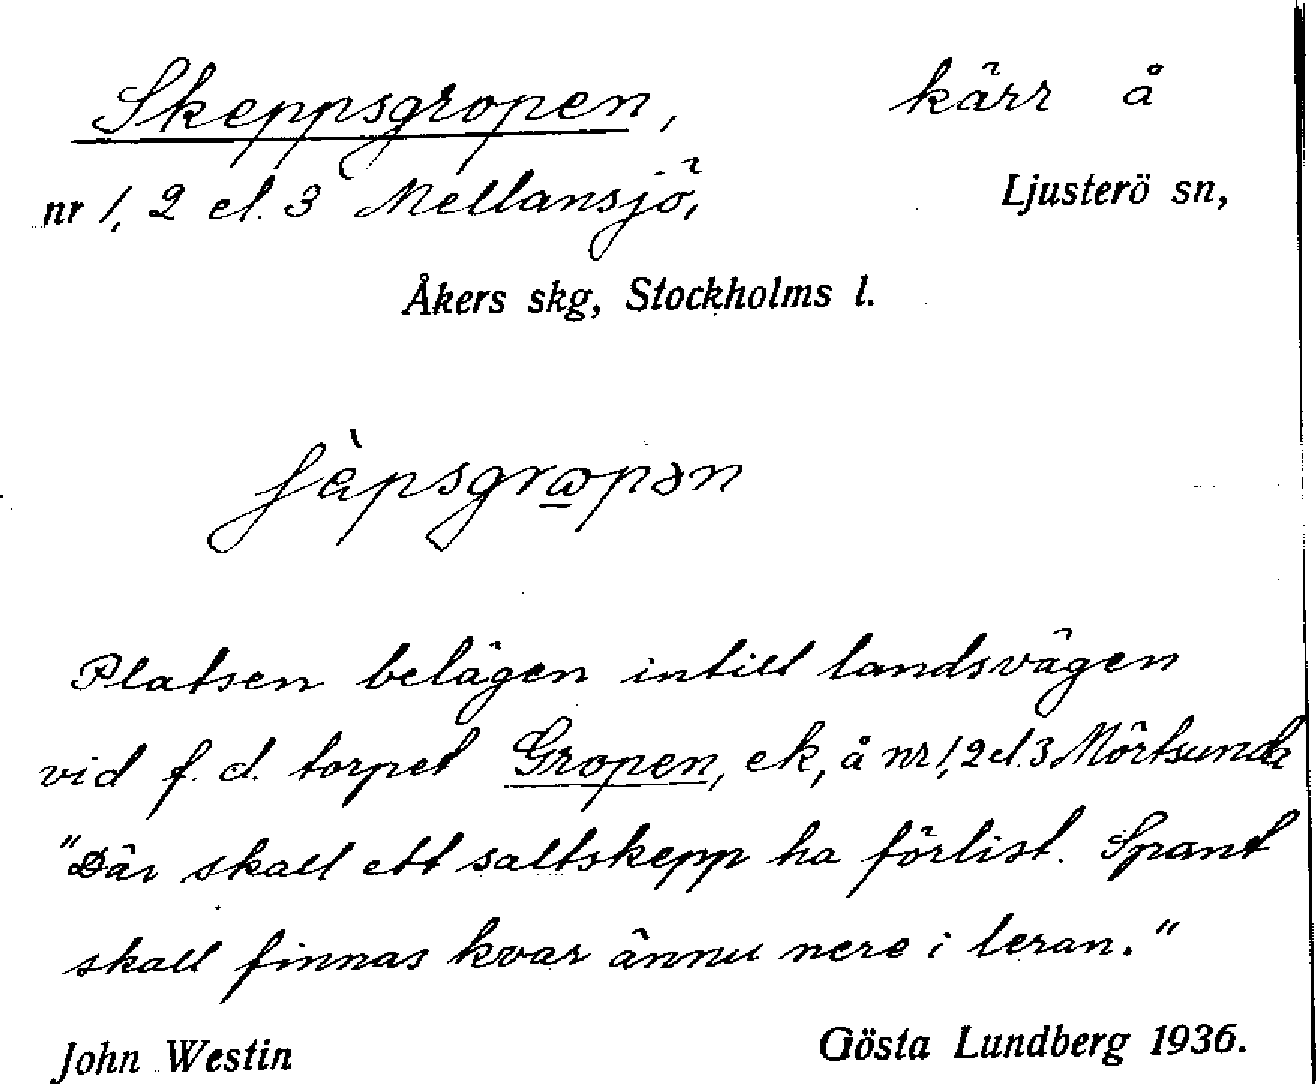 Skeppsgropen, kärr å
nr 1, 2 el. 3 Mellansjö, Ljusterö sn,
Åkers skg, Stockholms l.
ʃèpsgrɷ̲pən
Platsen belägen intill landsvägen
vid f. d. torpet Gropen, ek, å nr 1, 2 el. 3 Mörtsunda
"Där skall ett saltskepp ha förlist. Spant
skall finnas kvar ännu nere i leran."
John Westin Gösta Lundberg 1936.